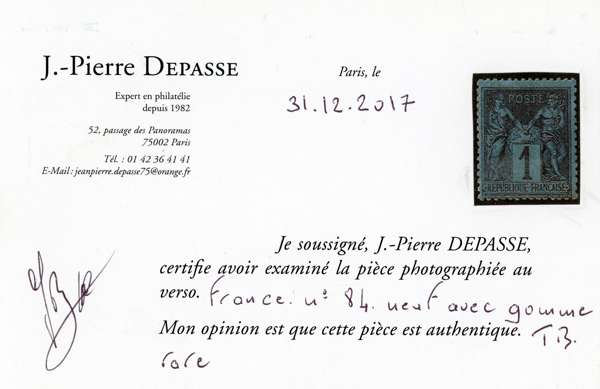 J.-Pierre DEPASSE
Expert en philatélie
depuis 1982
52, passage des Panoramas
75002 Paris
Tél. : 01 42 36 41 41
E-Mail : jeanpierre.depasse75@orange.fr
Paris, le
31.12.2017
POSTE
1
REPUBLIQUE FRANÇAISE
Je soussigné, J.-Pierre DEPASSE,
certifie avoir examiné la pièce photographiée au
verso. France. n° 84. neuf avec gomme
Mon opinion est que cette pièce est authentique. T.B.
rare